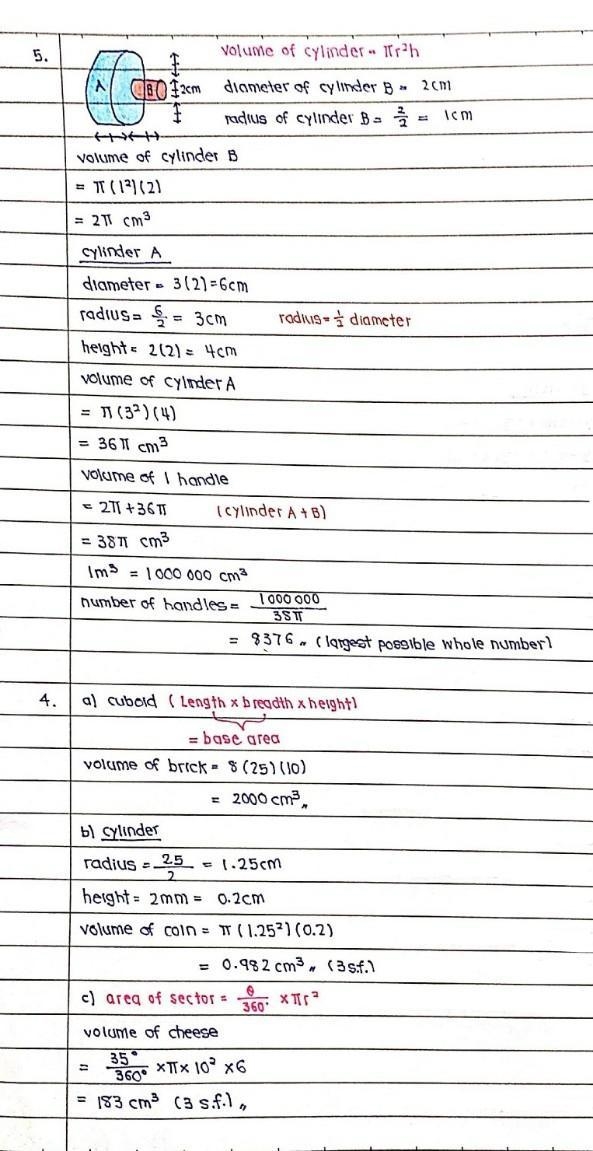 5.
A
B
2cm
volume of cylinder = πr²h
diameter of cylinder B = 2cm
radius of cylinder B = 2/2 = 1cm
volume of cylinder B
= π(1²)(2)
= 2π cm³
cylinder A
diameter = 3(2)=6cm
radius = 6/2 = 3cm radius = 1/2 diameter
height = 2(2) = 4cm
volume of cylinder A
= π(3²)(4)
= 36π cm³
volume of 1 handle
= 2π + 36π (cylinder A + B)
= 38π cm³
1m³ = 1000 000 cm³
number of handles = 1000 000/38π
= 8376 „ (largest possible whole number)
4. a) cuboid (Length x breadth x height)
= base area
volume of brick = 8(25)(10)
= 2000 cm³„
b) cylinder
radius = 25/2 = 1.25cm
height = 2mm = 0.2cm
volume of coin = π(1.25²)(0.2)
= 0.982 cm³ „ (3s.f.)
c) area of sector = θ/360° x πr²
volume of cheese
= 35°/360° x π x 10² x 6
= 183 cm³ (3 s.f.) „